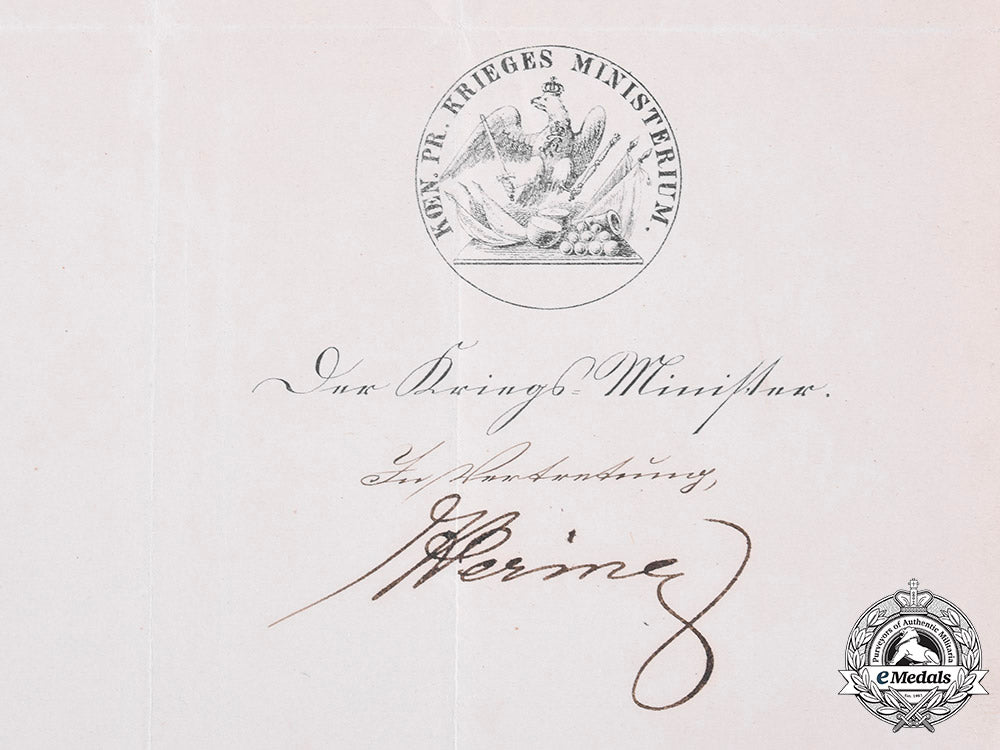 KŒN. PR. KRIEGES MINISTERIUM.
Der Kriegs-Minister.
In Vertretung,
Purveyors of Authentic Militaria
eMedals
Est. 1967